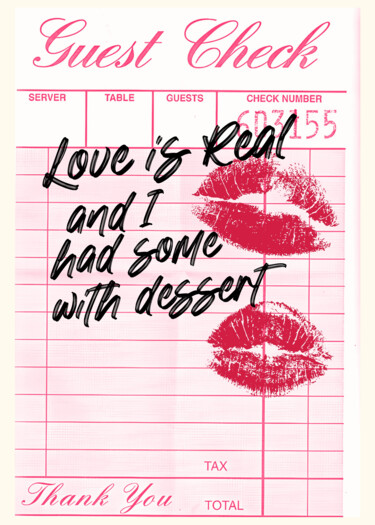 Guest Check
SERVER TABLE GUESTS CHECK NUMBER
603155
Love is Real
and I
had some
with dessert
TAX
Thank You
TOTAL